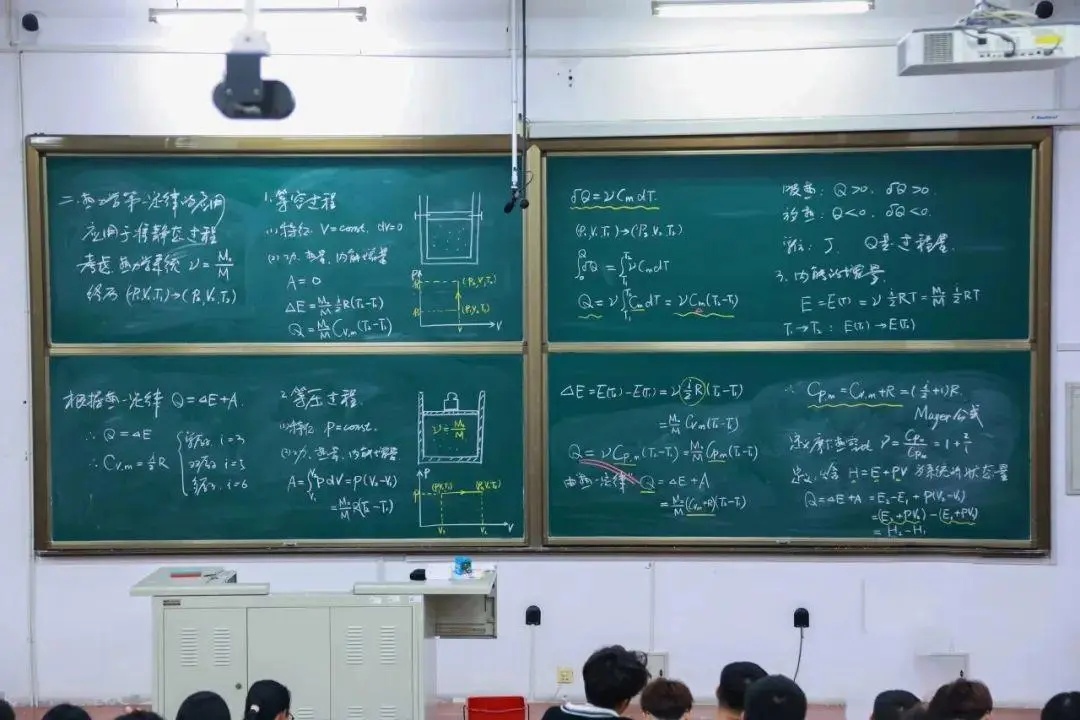 二.热力学第一定律的应用
应用于准静态过程
考虑热力学系统 ν=M₀/M
终态 (P₁V₁T₁)→(P₂V₂T₂)
1.等容过程
(1)特征 V=const. dV=0
(2)功.热量.内能增量
A=0
ΔE=M₀/M i/2 R(T₂-T₁)
Q=M₀/M Cv,m(T₂-T₁)
P
P₂ (P₂,V,T₂)
P₁ (P₁,V,T₁)
V V
đQ=νCmdT.
(P₁V₁T₁)→(P₂V₂T₂)
∫₀^Q đQ=∫_T₁^T₂ νCmdT
Q=ν∫_T₁^T₂ CmdT=νCm(T₂-T₁)
吸热: Q>0. đQ>0.
放热: Q<0. đQ<0.
单位: J. Q是过程量.
3.内能的增量
E=E(T)=ν i/2 RT=M₀/M i/2 RT
T₁→T₂: E(T₁)→E(T₂)
根据热一定律 Q=ΔE+A.
∴ Q=ΔE
∴ Cv,m=i/2 R
i=3
i=5
i=6
2.等压过程.
(1)特征 P=const.
(2)功.热量.内能增量
A=∫_V₁^V₂ PdV=P(V₂-V₁)
=M₀/M R(T₂-T₁)
ν=M₀/M
P
P (P,V₁,T₁) (P,V₂,T₂)
V₁ V₂ V
ΔE=E(T₂)-E(T₁)=ν i/2 R(T₂-T₁)
=M₀/M Cv,m(T₂-T₁)
Q=νCp,m(T₂-T₁)=M₀/M Cp,m(T₂-T₁)
由热一定律 Q=ΔE+A
=M₀/M(Cv,m+R)(T₂-T₁)
∴ Cp,m=Cv,m+R=(i/2+1)R.
Mayer公式
定义摩尔热容比 γ=1+2/i
定义:焓 H=E+PV 为系统的状态量
Q=ΔE+A=E₂-E₁+P(V₂-V₁)
=(E₂+PV₂)-(E₁+PV₁)
=H₂-H₁